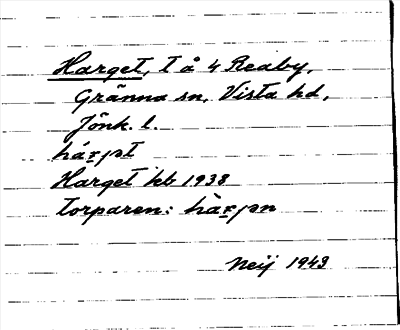 Harget, t å 4 Reaby,
Gränna sn, Vista hd,
Jönk. l.
Harget kb 1938
torparen:
Neij 1943